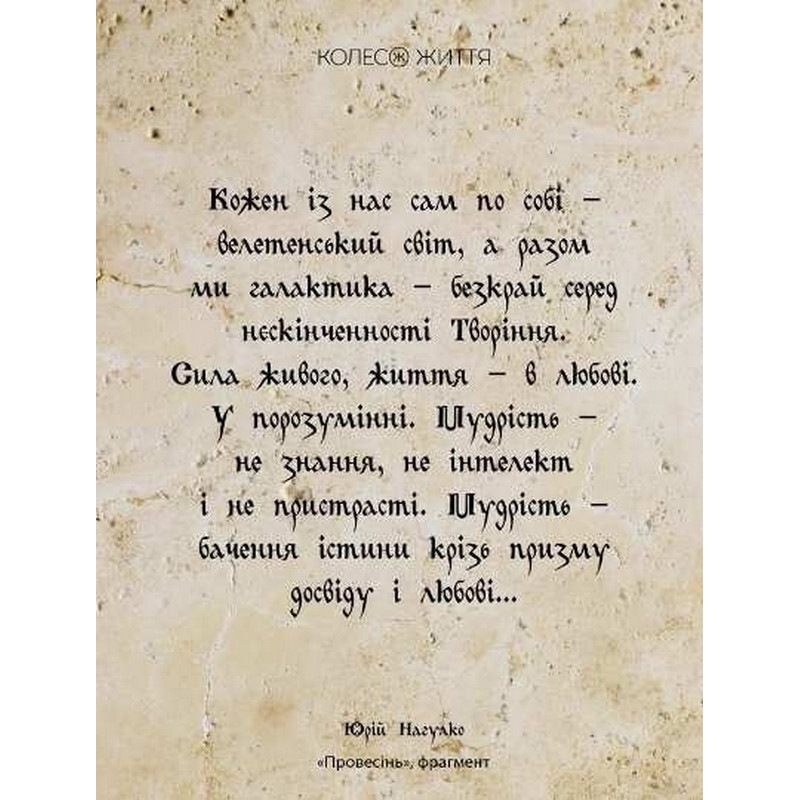 КОЛЕСО ЖИТТЯ
Кожен із нас сам по собі –
велетенський світ, а разом
ми галактика – безкрай серед
нескінченності Творіння.
Сила живого, життя – в любові.
У порозумінні. Мудрість –
не знання, не інтелект
і не пристрасті. Мудрість –
бачення істини крізь призму
досвіду і любові...
Юрій Нагулко
«Провесінь», фрагмент